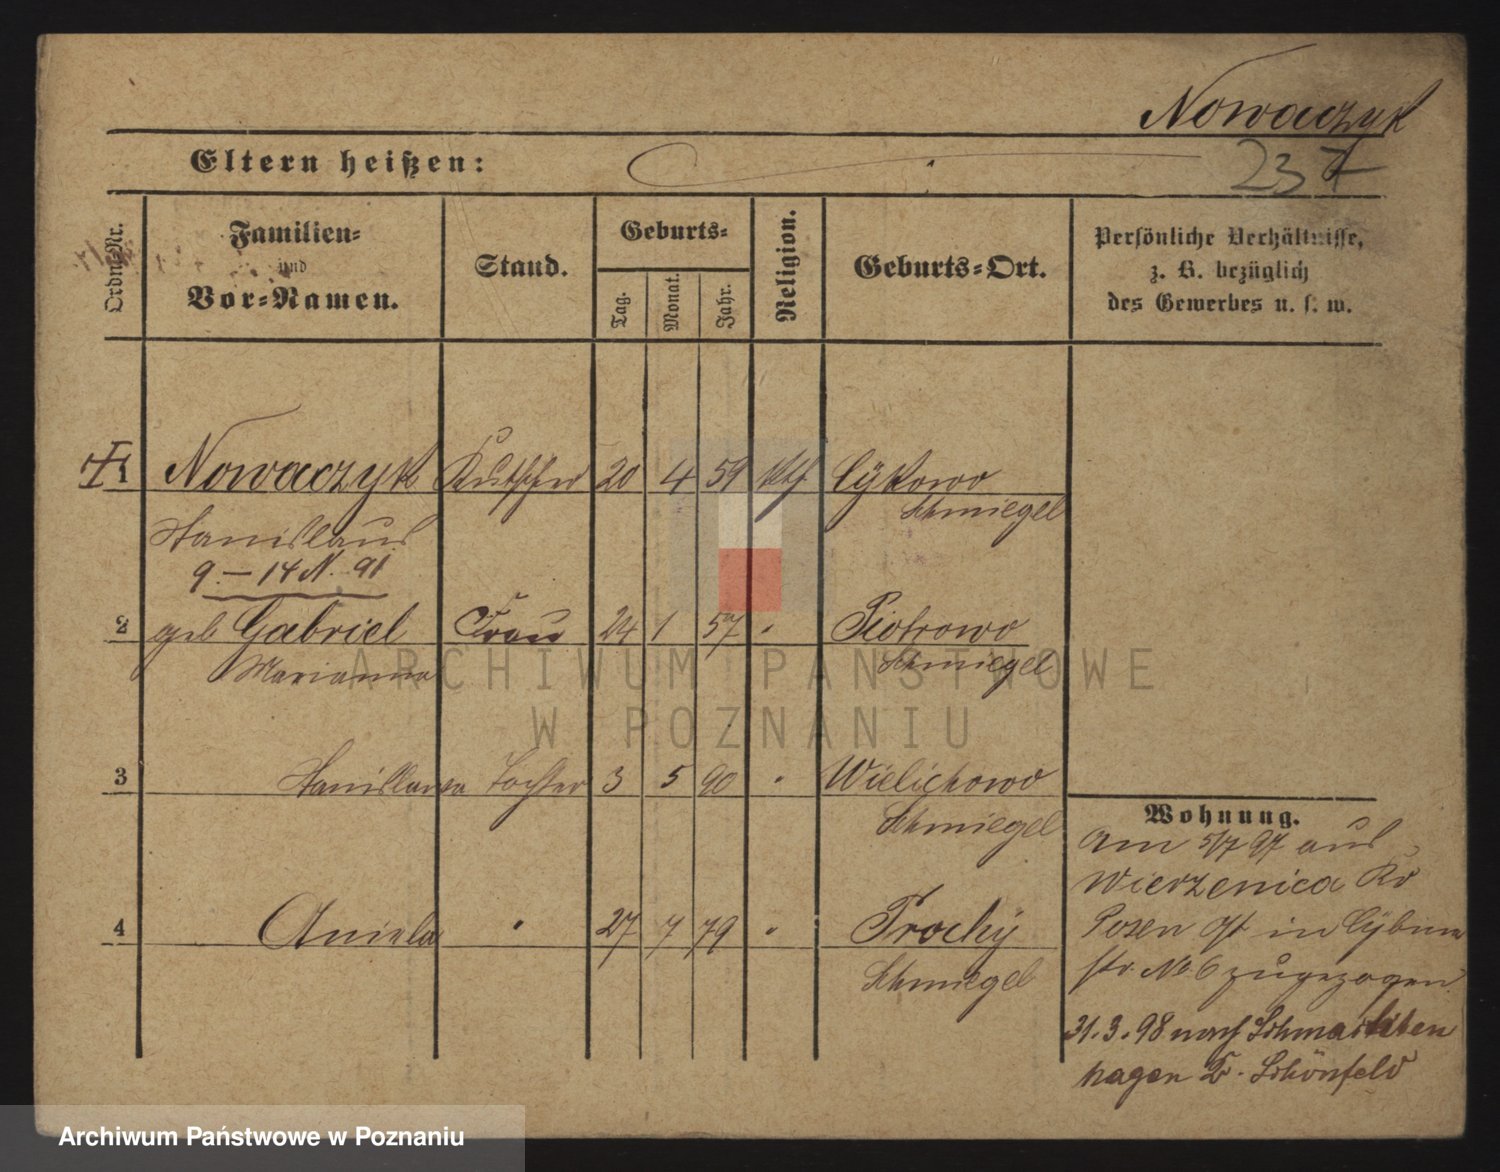 Nowaczyk
Eltern heißen:
237
Ordngs-Nr.
Familien-
und
Vor-Namen.
Stand.
Geburts-
Tag.
Monat.
Jahr.
Religion.
Geburts-Ort.
Persönliche Verhältnisse,
z. B. bezüglich
des Gewerbes u. s. w.
1 Nowaczyk Kutscher 20 4 59 kth Cykowo
Schmiegel
Stanislaus
9 - 14 N. 91
2 geb Gabriel Frau 24 1 57 " Piotrowo
Marianna Schmiegel
ARCHIWUM PAŃSTWOWE
W POZNANIU
3 Stanislawa Tochter 3 5 90 " Wielichowo
Schmiegel
4 Aniela " 27 7 79 " Prochy
Schmiegel
Wohnung.
Am 5/7 97 aus
Wierzenica Kr
Posen Ost in Cybina
str. No 6 zugezogen
31.3.98 nach
hagen Schönfeld
Archiwum Państwowe w Poznaniu